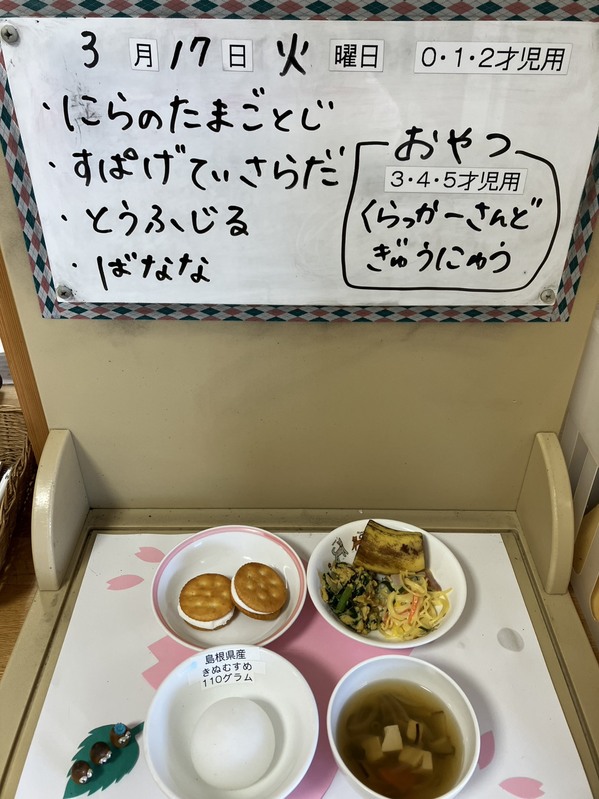 3月17日 火曜日 0・1・2才児用
・にらのたまごとじ
・すぱげてぃさらだ
・とうふじる
・ばなな
おやつ
3・4・5才児用
くらっかーさんど
ぎゅうにゅう
島根県産
きぬむすめ
110グラム